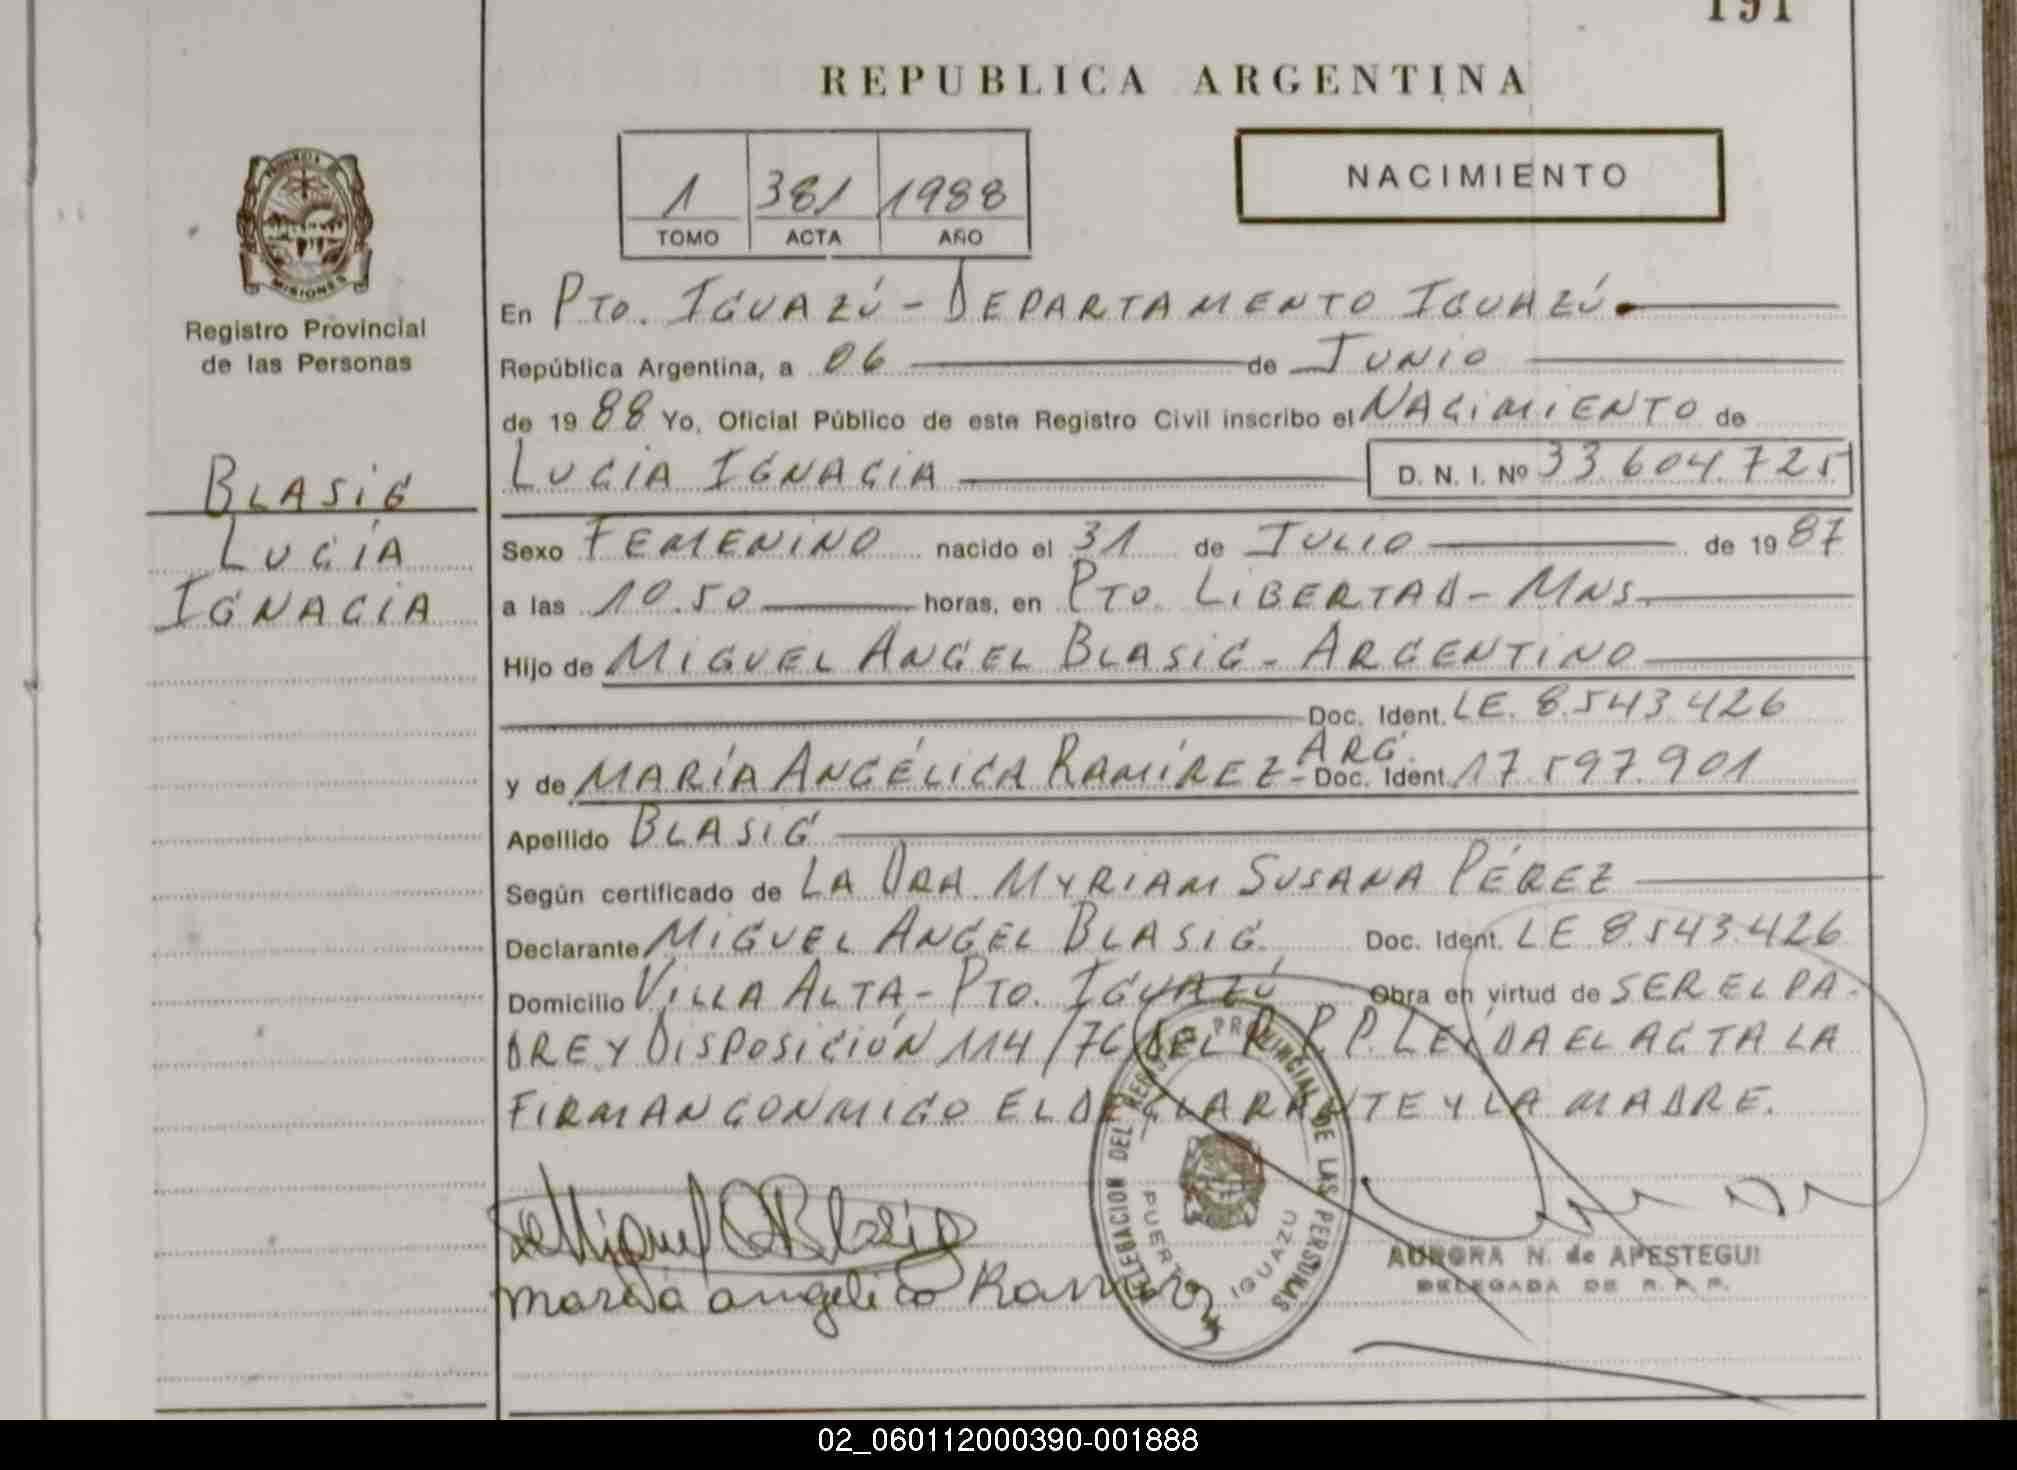 191
REPUBLICA ARGENTINA
1 381 1988
TOMO ACTA AÑO
NACIMIENTO
MISIONES
Registro Provincial
de las Personas
BLASIG
LUCÍA
IGNACIA
En PTO. IGUAZÚ - DEPARTAMENTO IGUAZÚ
República Argentina, a 06 de JUNIO
de 1988 Yo, Oficial Público de este Registro Civil inscribo el NACIMIENTO de
LUCÍA IGNACIA D. N. I. Nº 33.604.725
Sexo FEMENINO nacido el 31 de JULIO de 1987
a las 10.50 horas, en PTO. LIBERTAD - MNS.
Hijo de MIGUEL ANGEL BLASIG - ARGENTINO
Doc. Ident. LE. 8.543.426
y de MARÍA ANGÉLICA RAMÍREZ - ARG. Doc. Ident. 17.597.901
Apellido BLASIG
Según certificado de LA DRA. MYRIAM SUSANA PÉREZ
Declarante MIGUEL ANGEL BLASIG. Doc. Ident. LE 8.543.426
Domicilio VILLA ALTA - PTO. IGUAZÚ Obra en virtud de SER EL PA-
DRE Y DISPOSICIÓN 114/76 DEL R.P.P. LEÍDA EL ACTA LA
FIRMAN CONMIGO EL DECLARANTE Y LA MADRE.
Miguel A Blasig
maria angelica Ramirez
DELEGACION DEL REGISTRO PROVINCIAL DE LAS PERSONAS
PUERTO IGUAZU
AURORA N. de APESTEGUI
DELEGADA DE R. P. P.
02_060112000390-001888